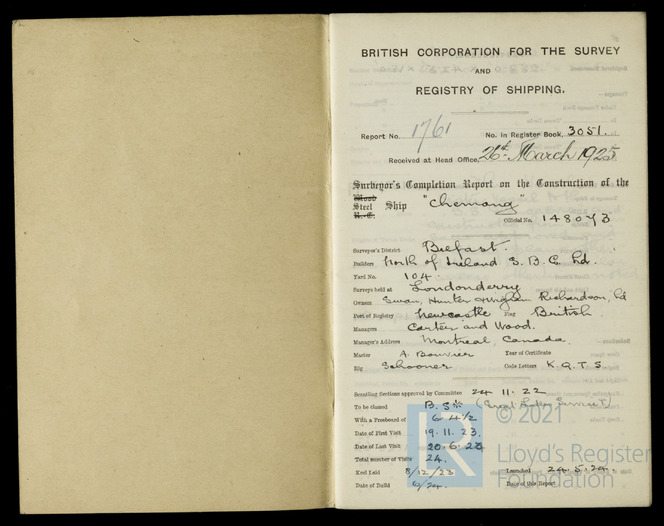 BRITISH CORPORATION FOR THE SURVEY
AND
REGISTRY OF SHIPPING.
Report No. 1761 No. in Register Book, 3051.
Received at Head Office, 26th March 1925
Surveyor's Completion Report on the Construction of the
Wood
Steel Ship "Chemong"
R.-C.
Official No. 148073
Surveyor's District Belfast.
Builders North of Ireland S. B. C. Ld.
Yard No. 104.
Surveys held at Londonderry
Owners Swan, Hunter Richardson, Ld
Port of Registry Newcastle Flag British
Managers Carter and Wood.
Manager's Address Montreal, Canada.
Master A. Bouvier Year of Certificate
Rig Schooner Code Letters K.Q.T.S
Scantling Sections approved by Committee 24 11. 22
To be classed B.S* (Great Lakes Service)
With a Freeboard of 6 4 1/2
Date of First Visit 19. 11. 23.
Date of Last Visit 20. 6. 24
Total number of Visits 24.
Keel Laid 8/12/23 Launched 24. 5. 24.
Date of Build 6/24. Date of this Report
© 2021
Lloyd's Register
Foundation